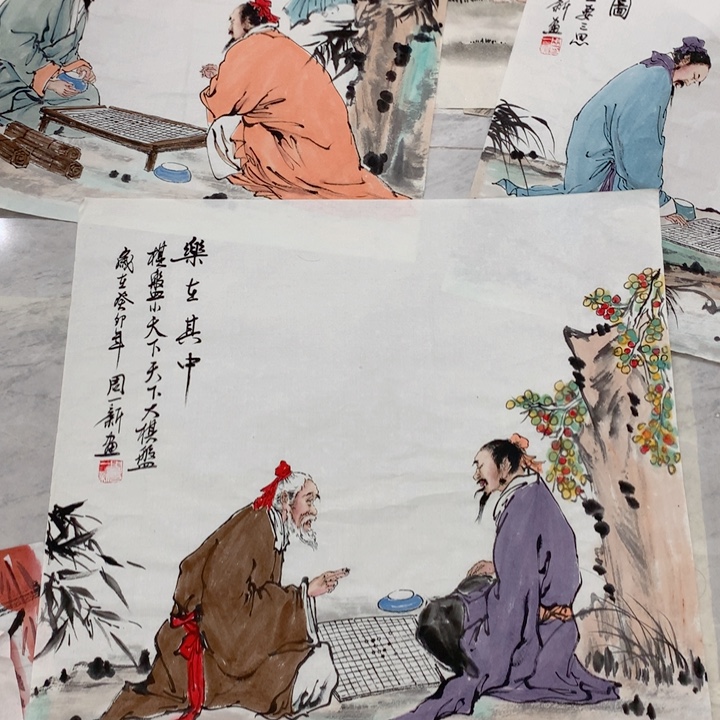 樂在其中
棋盤小天下天下大棋盤
歲在癸卯年 周一新畫
圖
要三思
新畫